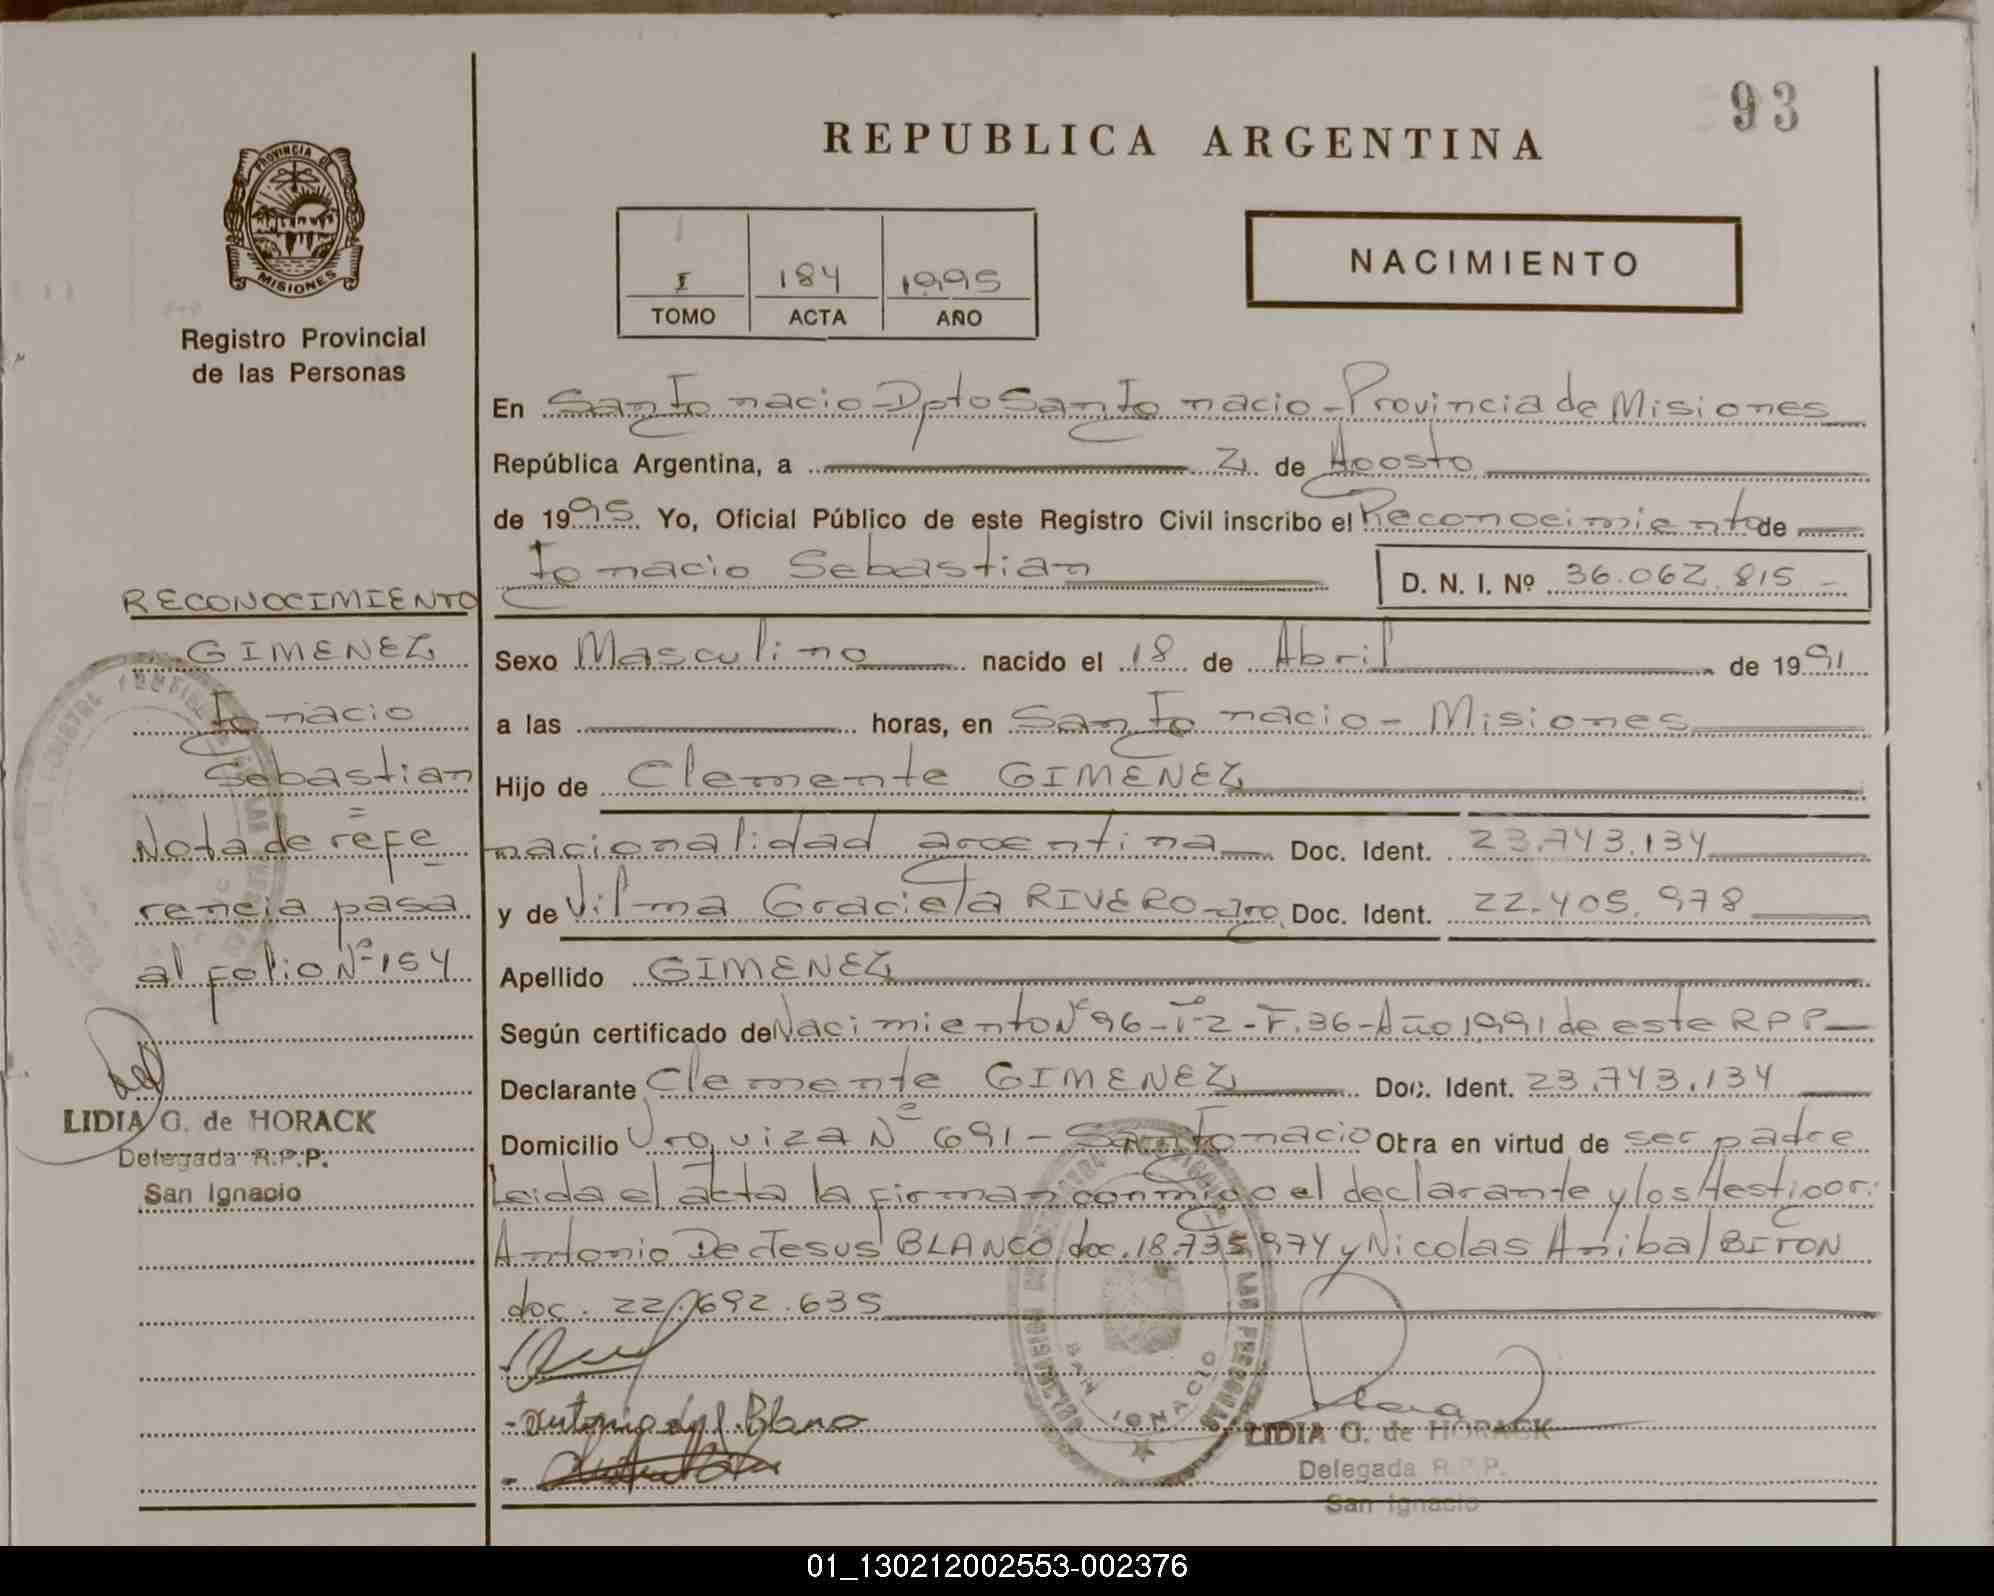 93
REPUBLICA ARGENTINA
PROVINCIA DE
MISIONES
Registro Provincial
de las Personas
NACIMIENTO
I 184 1995
TOMO ACTA AÑO
En San Ignacio - Dpto San Ignacio - Provincia de Misiones
República Argentina, a 21 de Agosto
de 1995 Yo, Oficial Público de este Registro Civil inscribo el Reconocimiento de
Ignacio Sebastian D. N. I. Nº 36.062.815 -
RECONOCIMIENTO
GIMENEZ
Ignacio
Sebastian
Nota de refe
rencia pasa
al folio Nº 154
LIDIA G. de HORACK
Delegada R.P.P.
San Ignacio
Sexo Masculino nacido el 18 de Abril de 1991
a las horas, en San Ignacio - Misiones
Hijo de Clemente GIMENEZ
nacionalidad argentina Doc. Ident. 23.743.134
y de Vilma Graciela RIVERO - Doc. Ident. 22.405.978
Apellido GIMENEZ
Según certificado de Nacimiento Nº 96 - T-2 - F. 36 - Año 1991 de este RPP
Declarante Clemente GIMENEZ Doc. Ident. 23.743.134
Domicilio Urquiza Nº 691 - San Ignacio Obra en virtud de ser padre
Leida el acta la firman conmigo el declarante y los testigos:
Antonio De Jesus BLANCO doc. 18.735.974 y Nicolas Anibal BITON
doc. 22.692.635
SAN IGNACIO
LIDIA G. de HORACK
Delegada R.P.P.
San Ignacio
01_130212002553-002376